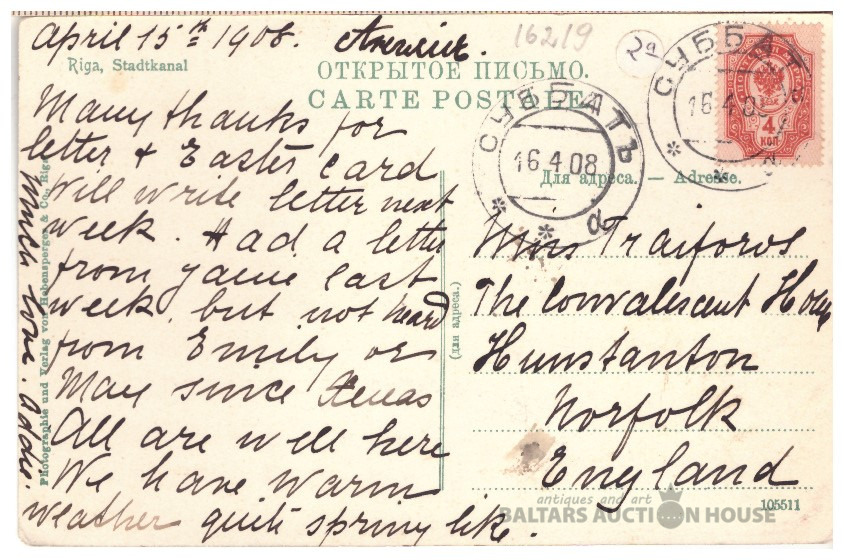 April 15th 1908. Англия.
16219
2a
Riga, Stadtkanal
ОТКРЫТОЕ ПИСЬМО.
CARTE POSTALE
Many thanks for
letter & Easter card
Will write letter next
week. Had a letter
from Jamie last
week, but not heard
from Emily or
May since Xmas
All are well here
We have warm
weather quite spring like.
Much love. Addy
Photographie und Verlag von Hebensperger & Co., Riga
СУББАТЪ
16.4.08
a
СУББАТЪ
16.4.08
a
4
КОП
Для адреса. — Adresse.
(для адреса.)
Miss Traiforos
The Convalescent Home
Hunstanton
Norfolk
England
antiques and art
BALTARS AUCTION HOUSE
105511